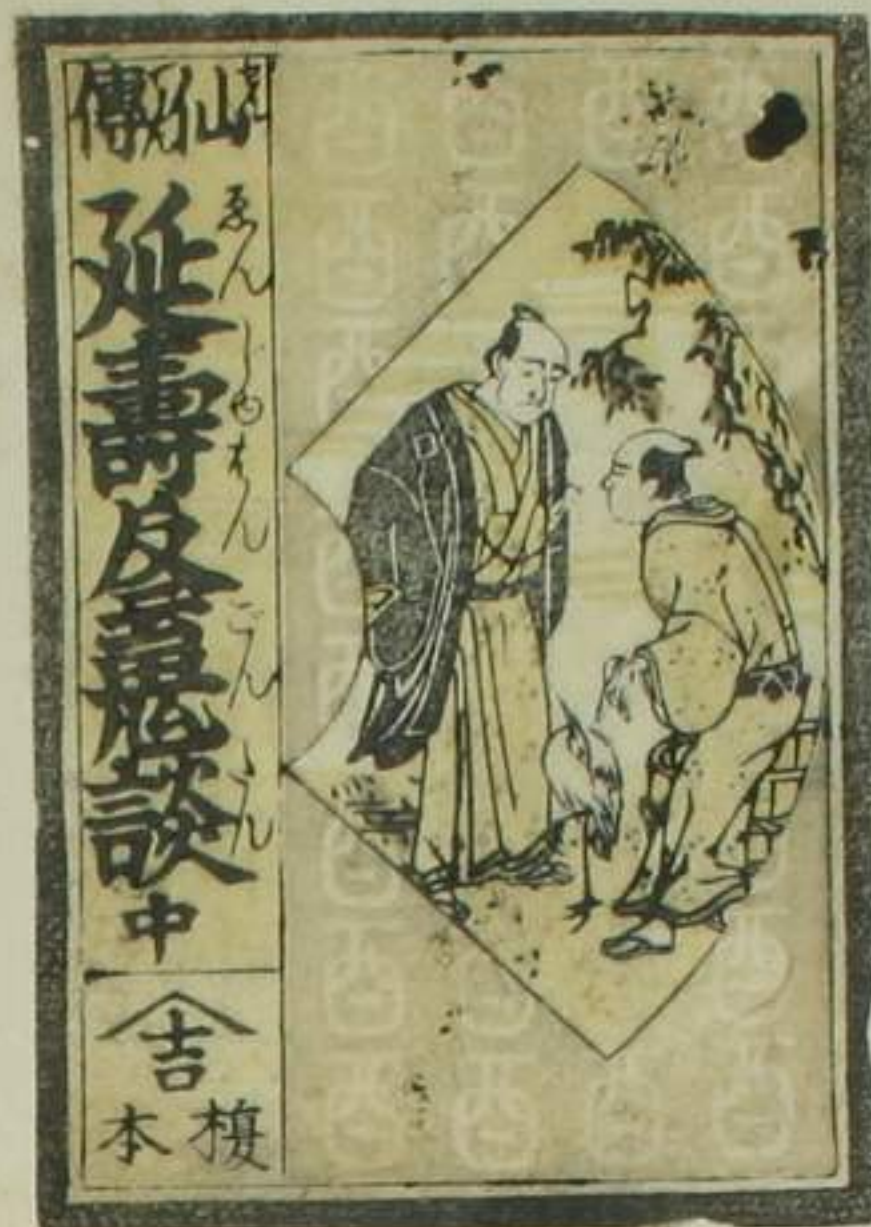 仙傳
延壽反魂談 中
ゑんじゆはんごんたん
吉
榎本
酉